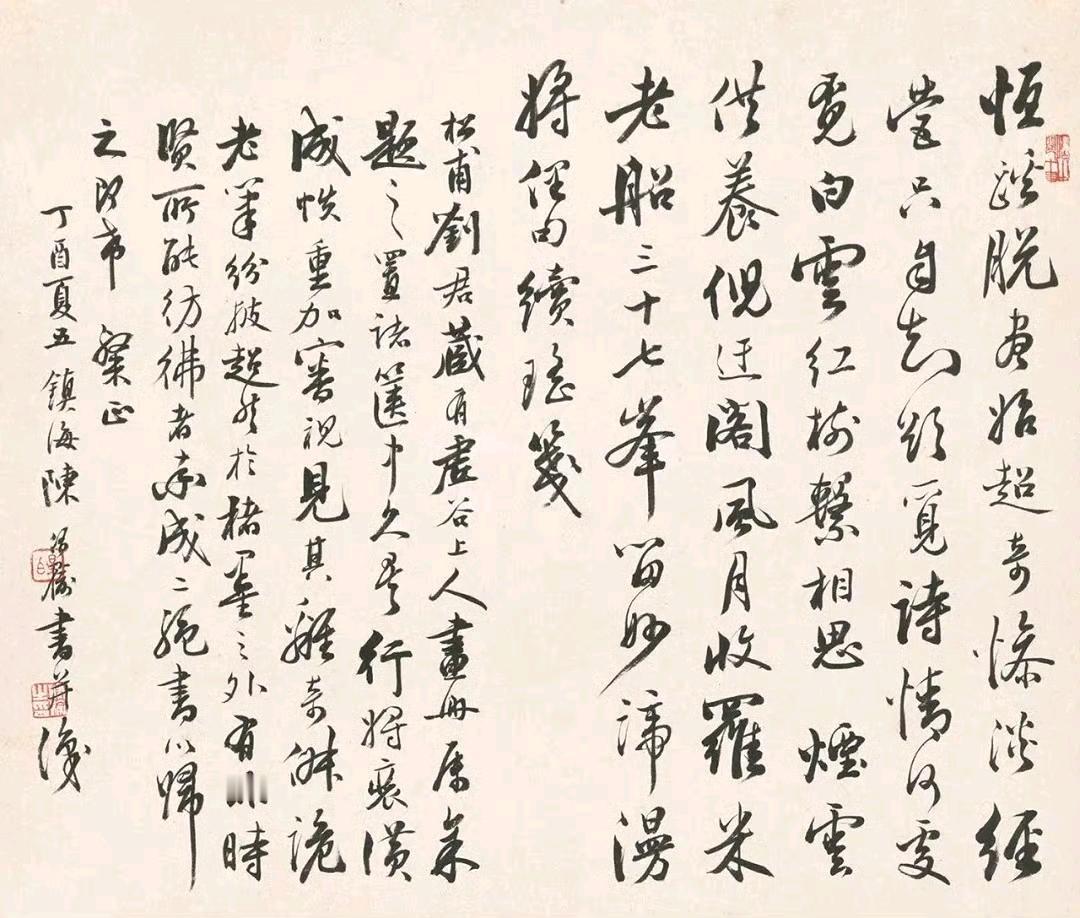 恒蹊脱盡始超奇慘淡經
營只自知欲覓詩情何處
覓白雲紅樹繫相思 煙雲
供養倪迂閣風月收羅米
老船三十七峯留妙諦漫
將俚曲續瑤箋
松甫劉君藏有虛谷上人畫册屬余
題之置諸篋中久矣行將裝潢
成帙重加審視見其離奇俶詭
老筆紛披超然於楮墨之外有非時
賢所能彷彿者率成二絕書以歸
之即希 粲正
丁酉夏五 鎮海陳修榆書并識